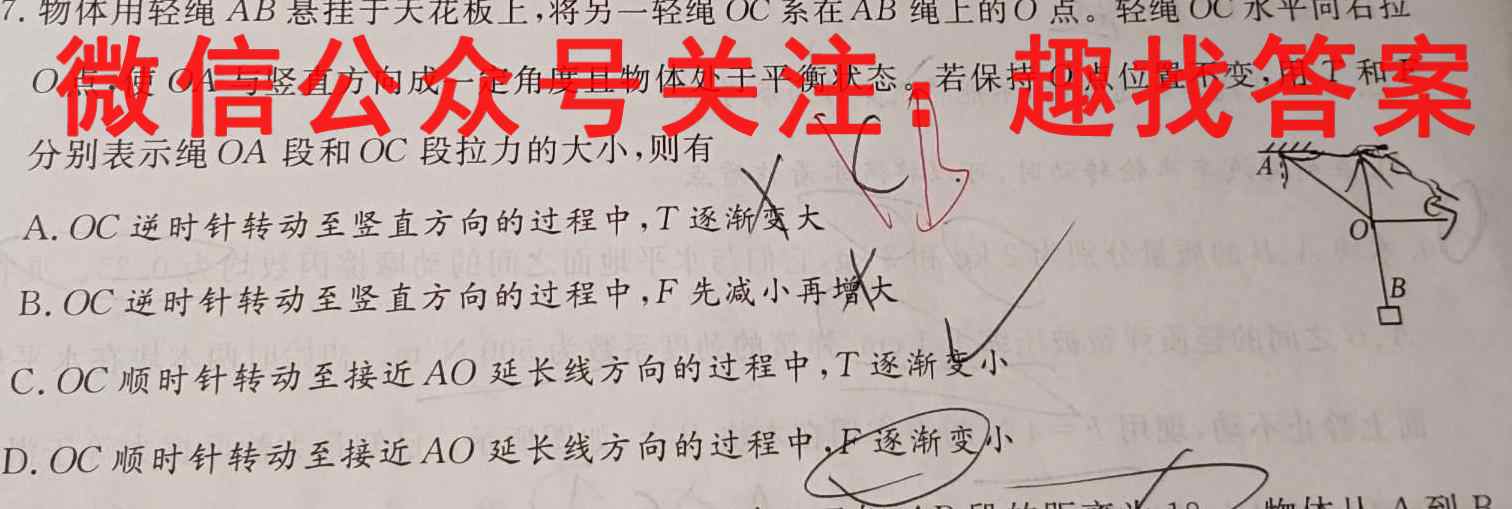 7. 物体用轻绳 AB 悬挂于天花板上,将另一轻绳 OC 系在 AB 绳上的 O 点。轻绳 OC 水平向右拉
O 点,使 OA 与竖直方向成一定角度且物体处于平衡状态。若保持 O 点位置不变,用 T 和 F
微信公众号关注:趣找答案
分别表示绳 OA 段和 OC 段拉力的大小,则有
A. OC 逆时针转动至竖直方向的过程中,T 逐渐变大
B. OC 逆时针转动至竖直方向的过程中,F 先减小再增大
C. OC 顺时针转动至接近 AO 延长线方向的过程中,T 逐渐变小
D. OC 顺时针转动至接近 AO 延长线方向的过程中,F 逐渐变小
A
O
C
B